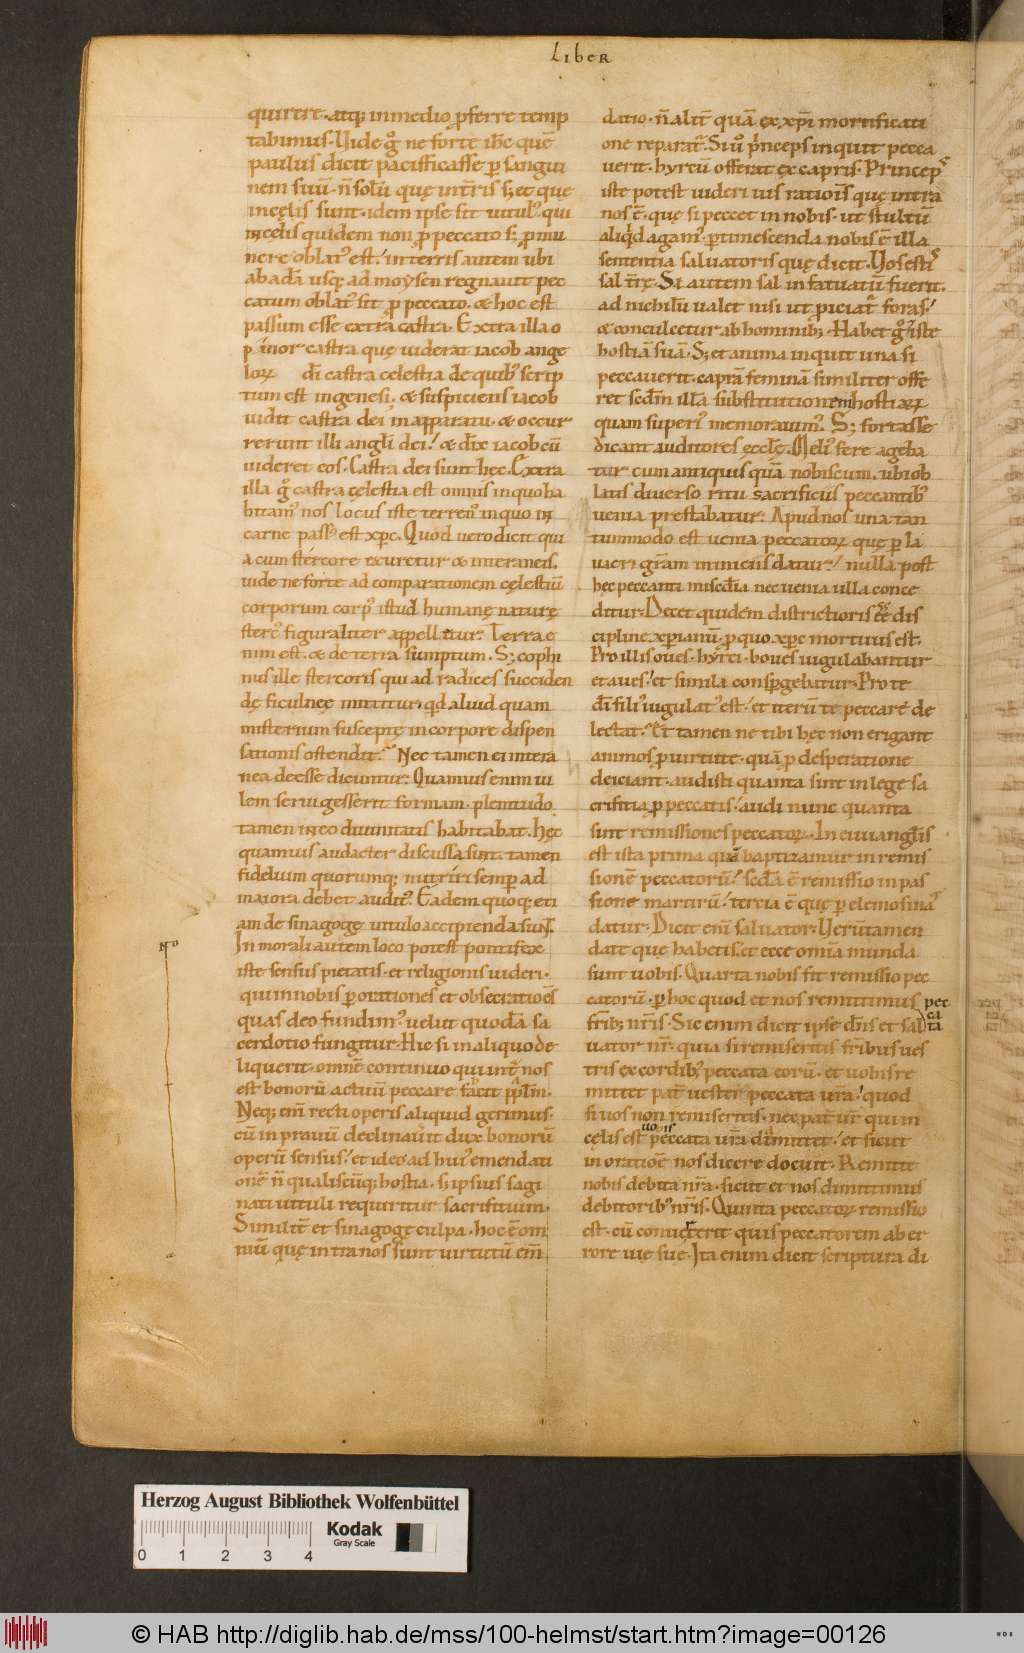 Liber
quirere. atq; in medio ꝓferre temp
tabimus. Vide gͦ ne forte ihc̄ quē
paulus dicit pacificasse ꝑ sangui
nem suū. n̄ solū quę int̄ris s; et quę
in cęlis sunt. idem ipse sit uitulꝰ. qui
in cęlis quidem non ꝓ peccato s; ꝓ mu
nere oblatꝰ est. in terris autem ubi
ab adā usq; ad moysen regnauit pec
catum oblatꝰ sit ꝓ peccato. & hoc est
passum esse extra castra. Extra illa o
pinor castra quę uiderat iacob ange
loꝝ dī castra celestia de quibꝰ scrip
tum est in genesi. & suspiciens iacob
uidit castra dei in apparatu. & occur
rerunt illi angli dei. & dix̄ iacob cū
uideret eos. Castra dei sunt hęc. Extra
illa gͦ castra cęlestia est omnis in quo ha
bitamꝰ nos locus iste terrenꝰ in quo in
carne passꝰ est xp̄c. Quod uero dicit qui
a cum stercore exuretur & interaneis.
uide ne forte ad comparationem cęlestiū
corporum corpꝰ istud humanę naturę
stercꝰ figuraliter appelletur. Terra e
nim est. & de terra sumptum. S; cophi
nus ille stercoris qui ad radices succiden
dę ficulneę mittitur qd aliud quam
misterium susceptę in corpore dispen
sationis ostendit. Nec tamen ei intera
nea deesse dicuntur. Quamuis enim ui
lem serui gesserit formam. plenitudo
tamen in eo diuinitatis habitabat. Hęc
quamuis audacter discussa sint. tamen
fidelium quorumq; nutriri semꝑ ad
maiora debet auditꝰ. Eadem quoq; eti
am de sinagogę uitulo accipienda sunt.
No
In morali autem loco potest pontifex
iste sensus pietatis. et religionis uideri.
qui in nobis ꝑ orationes et obsecratioēs
quas deo fundimꝰ uelut quodā sa
cerdotio fungitur. Hic si in aliquo de
liquerit. omnē continuo qui int̄ nos
est bonorū actuū peccare facit pplm̄.
Neq; em̄ recti operis aliquid gerimus.
cū in prauū declinauit dux bonorū
operū sensus. et ideo ad huiꝰ emendati
onē n̄ qualiscūq; hostia. s; ipsius sagi
nati uituli requiritur sacrificium.
Similit̄ et sinagogę culpa. hoc ē om
niū quę intra nos sunt uirtutū em̄
datio. n̄ alit̄ quā ex xp̄i mortificati
one reparat̄. Si uͦ pͥnceps inquit pecca
uerit. hyrcū offerat ex capris. Princeps
iste potest uideri uis ratiōis quę intra
nos ē. quę si peccet in nobis. ut stultū
aliqͥd agamꝰ. ꝑtimescenda nobis ē illa
sententia saluatoris quę dicit. Vos estis
sal t̄rę. Si autem sal infatuatū fuerit.
ad nichilū ualet nisi ut ꝓiciat̄ foras.
& conculcetur ab hominib;. Habet gͦ iste
hostiā suā. S; et anima inquit una si
peccauerit. caprā feminā similiter offe
ret scdm̄ illā substitutionem hostiaꝝ
quam superiꝰ memorauimꝰ. S; fortasse
dicant auditores ęcclę. Meliꝰ fere ageba
tur cum antiquis quā nobiscum. ubi ob
latis diuerso ritu sacrificiis peccantibꝰ
uenia prestabatur. Apud nos una tan
tummodo est uenia peccatoꝝ quę ꝑ la
uacri grām in iniciis datur. nulla post
hęc peccanti misc̄dia nec uenia ulla conce
ditur. Decet quidem districtioris eē dis
cipline xp̄ianū. ꝓ quo xp̄c mortuus est.
Pro illis oues. hyrci. boues iugulabantur
et aues. et simila conspgebatur. Pro te
dī filiꝰ iugulatꝰ est. et iterū te peccare de
lectat. Et tamen ne tibi hęc non erigant
animos ꝓ uirtute. quā ꝓ desperatione
deiciant. audisti quanta sint in lege sa
crificia ꝓ peccatis. audi nunc quanta
sint remissiones peccatoꝝ. In euuanglīs
est ista prima qua baptizamur in remis
sionē peccatorū. Scda ē remissio in pas
sione martirū. tercia ē quę ꝑ elemosinā
datur. Dicit em̄ saluator. Uerūtamen
date que habetis. et ecce omīa munda
sunt uobis. Quarta nobis fit remissio pec
catorū. ꝑ hoc quod et nos remittimus pec
cata
frīb; nr̄is. Sic enim dicit ipse dn̄s et sal
uator nr̄. quia si remiseritis fr̄ibus ues
tris ex cordibꝰ peccata eorū. et uobis re
mittet pat̄ uester peccata ur̄a. quod
si uos non remiseritis. nec pat̄ ur̄ qui in
uobis
cęlis est peccata ur̄a dimittet. et sicut
in oratiōe nos dicere docuit. Remitte
nobis debita nr̄a. sicut et nos dimittimus
debitoribꝰ nr̄is. Quinta peccatoꝝ remissio
est. cū conuerterit quis peccatorem ab er
rore uię suę. Ita enim dicit scriptura di
Herzog August Bibliothek Wolfenbüttel
0 1 2 3 4
Kodak
Gray Scale
© HAB http://diglib.hab.de/mss/100-helmst/start.htm?image=00126